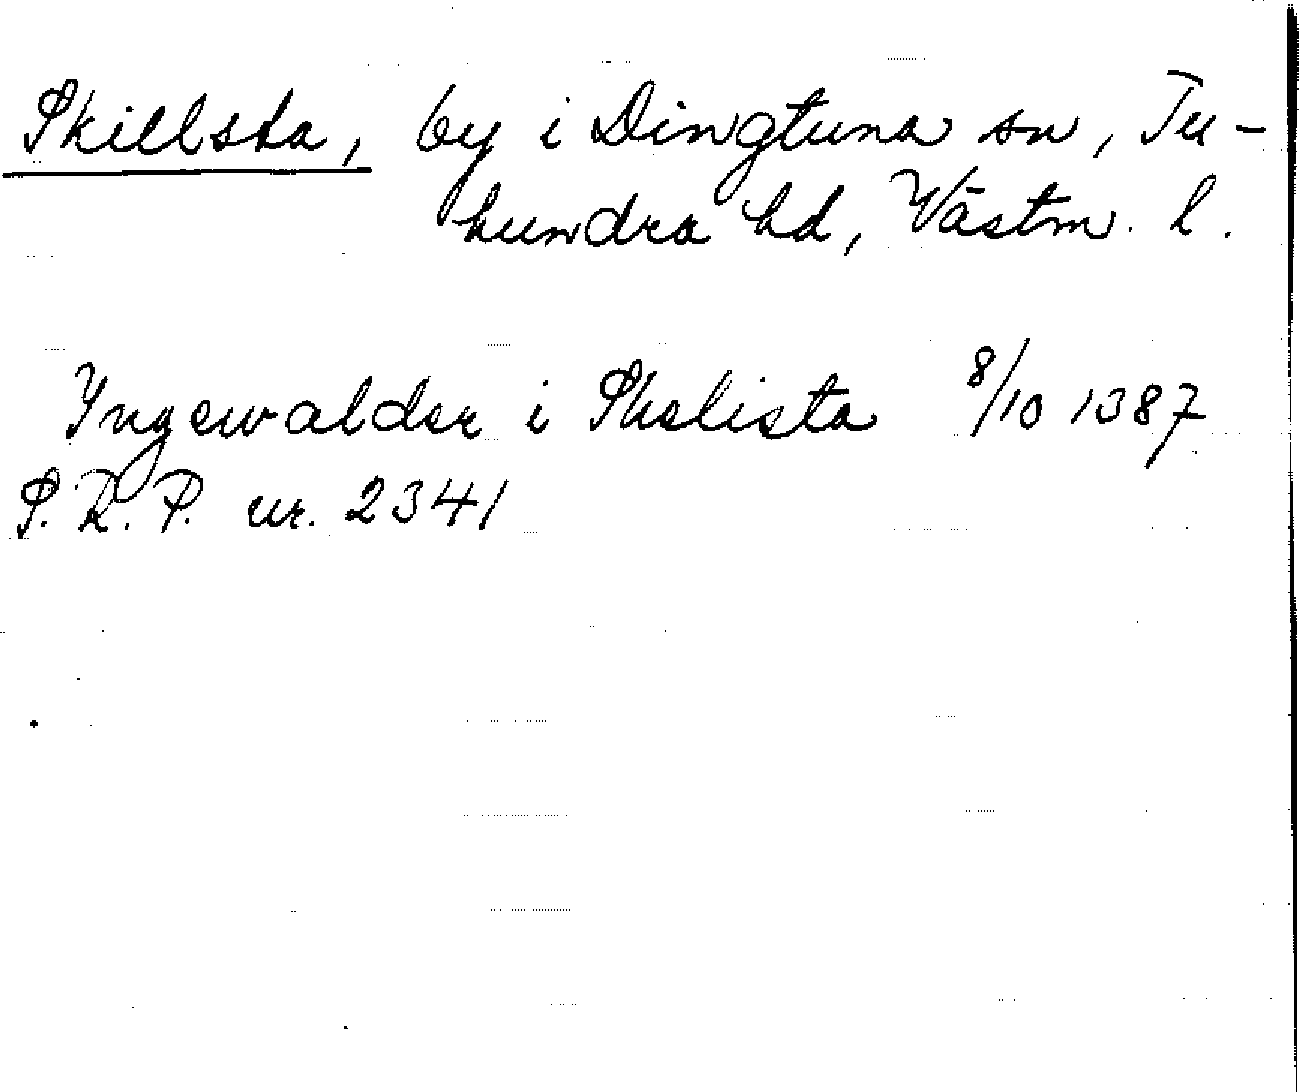 Skillsta, by i Dingtuna sn, Tu-
hundra hd, Västm. l.
Yngewalder i Skelista 8/10 1387
S.R.P. nr. 2341